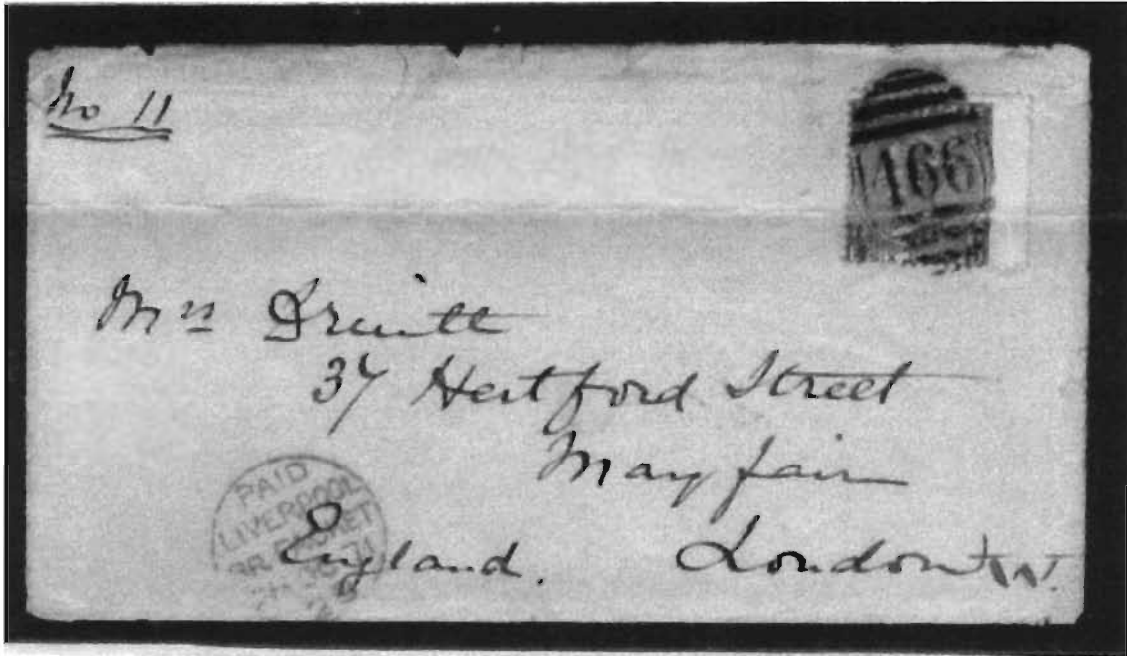 No 11
466
Mrs Druitt
37 Hertford Street
Mayfair
England. London W.
PAID
LIVERPOOL
BR. PACKET